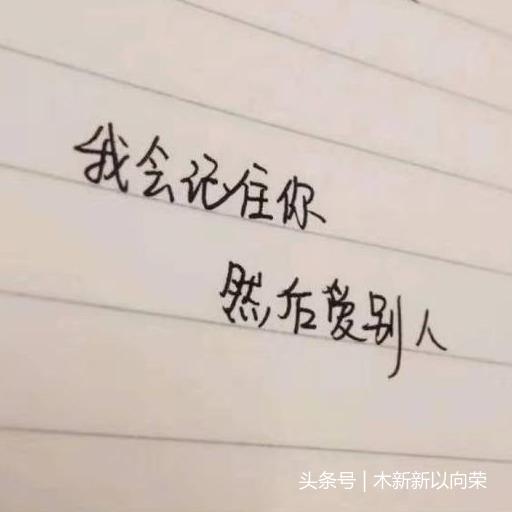 我会记住你
然后爱别人
头条号 | 木新新以向荣